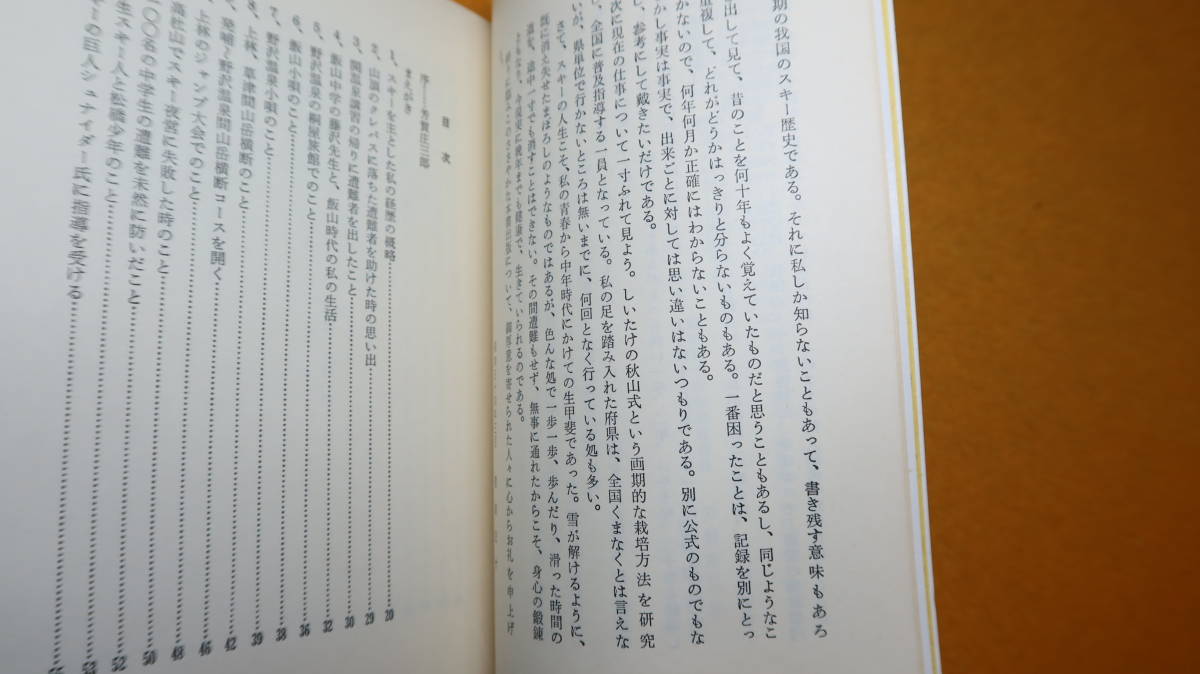 期の我国のスキー歴史である。それに私しか知らないこともあって、書き残す意味もあろ
出して見て、昔のことを何十年もよく覚えていたものだと思うこともあるし、同じようなこ
重複して、どれがどうかはっきりと分らないものもある。一番困ったことは、記録を別にとっ
かないので、何年何月か正確にはわからないこともある。
かし事実は事実で、出来ごとに対しては思い違いはないつもりである。別に公式のものでもな
し、参考にして戴きたいだけである。
次に現在の仕事について一寸ふれて見よう。しいたけの秋山式という画期的な栽培方法を研究
し、全国に普及指導する一員となっている。私の足を踏み入れた府県は、全国くまなくとは言えな
いが、県単位で行かないところは無いまでに、何回となく行っている処も多い。
さて、スキーの人生こそ、私の青春から中年時代にかけての生甲斐であった。雪が解けるように、
既に消え失せたまぼろしのようなものではあるが、色んな処で一歩一歩、歩んだり、滑った時間の
道を、途中一寸でも消すことはできない。その間遭難もせず、無事に通れたからこそ、身心の鍛錬
ともなり、今現実に晩年までも健康で、生きていられるのである。
このささやかな本書出版について、御厚意を寄せられた人々に心からお礼を申上げ
目次
序……芳賀庄三郎
まえがき
1、スキーを主とした私の経歴の概略……20
2、山調のクレバスに落ちた遭難者を助けた時の思い出……29
3、関温泉講習の帰りに遭難者を出したこと……30
4、飯山中学の藤沢先生と、飯山時代の私の生活……32
5、野沢温泉の桐屋旅館でのこと……36
6、飯山小唄のこと……38
7、野沢温泉小唄のこと……39
8、上林、草津間山岳横断のこと……42
発哺と野沢温泉間山岳横断コースを開く……46
上林のジャンプ大会でのこと……48
高社山でスキー夜営に失敗した時のこと……50
〇〇名の中学生の遭難を未然に防いだこと……52
生スキー人と松橋少年のこと……53
キーの巨人シュナイダー氏に指導を受ける……